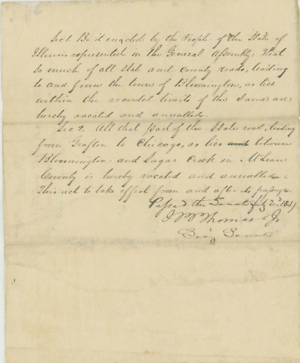 Sec 1 Be it enacted by the People of the State of
Illinois represented in the General Assembly, That
so much of all State and County roads, leading
to and from the town of Bloomington, as lies
within the recorded limits of the same are
hereby vacated and annulled.
Sec 2. All that part of the State road, leading
from Grafton to Chicago, as lies between
Bloomington and Sugar Creek in McLean
County is hereby vacated and annulled.
This act to take effect from and after its passage
Passed the Senate
Thomas Jr.